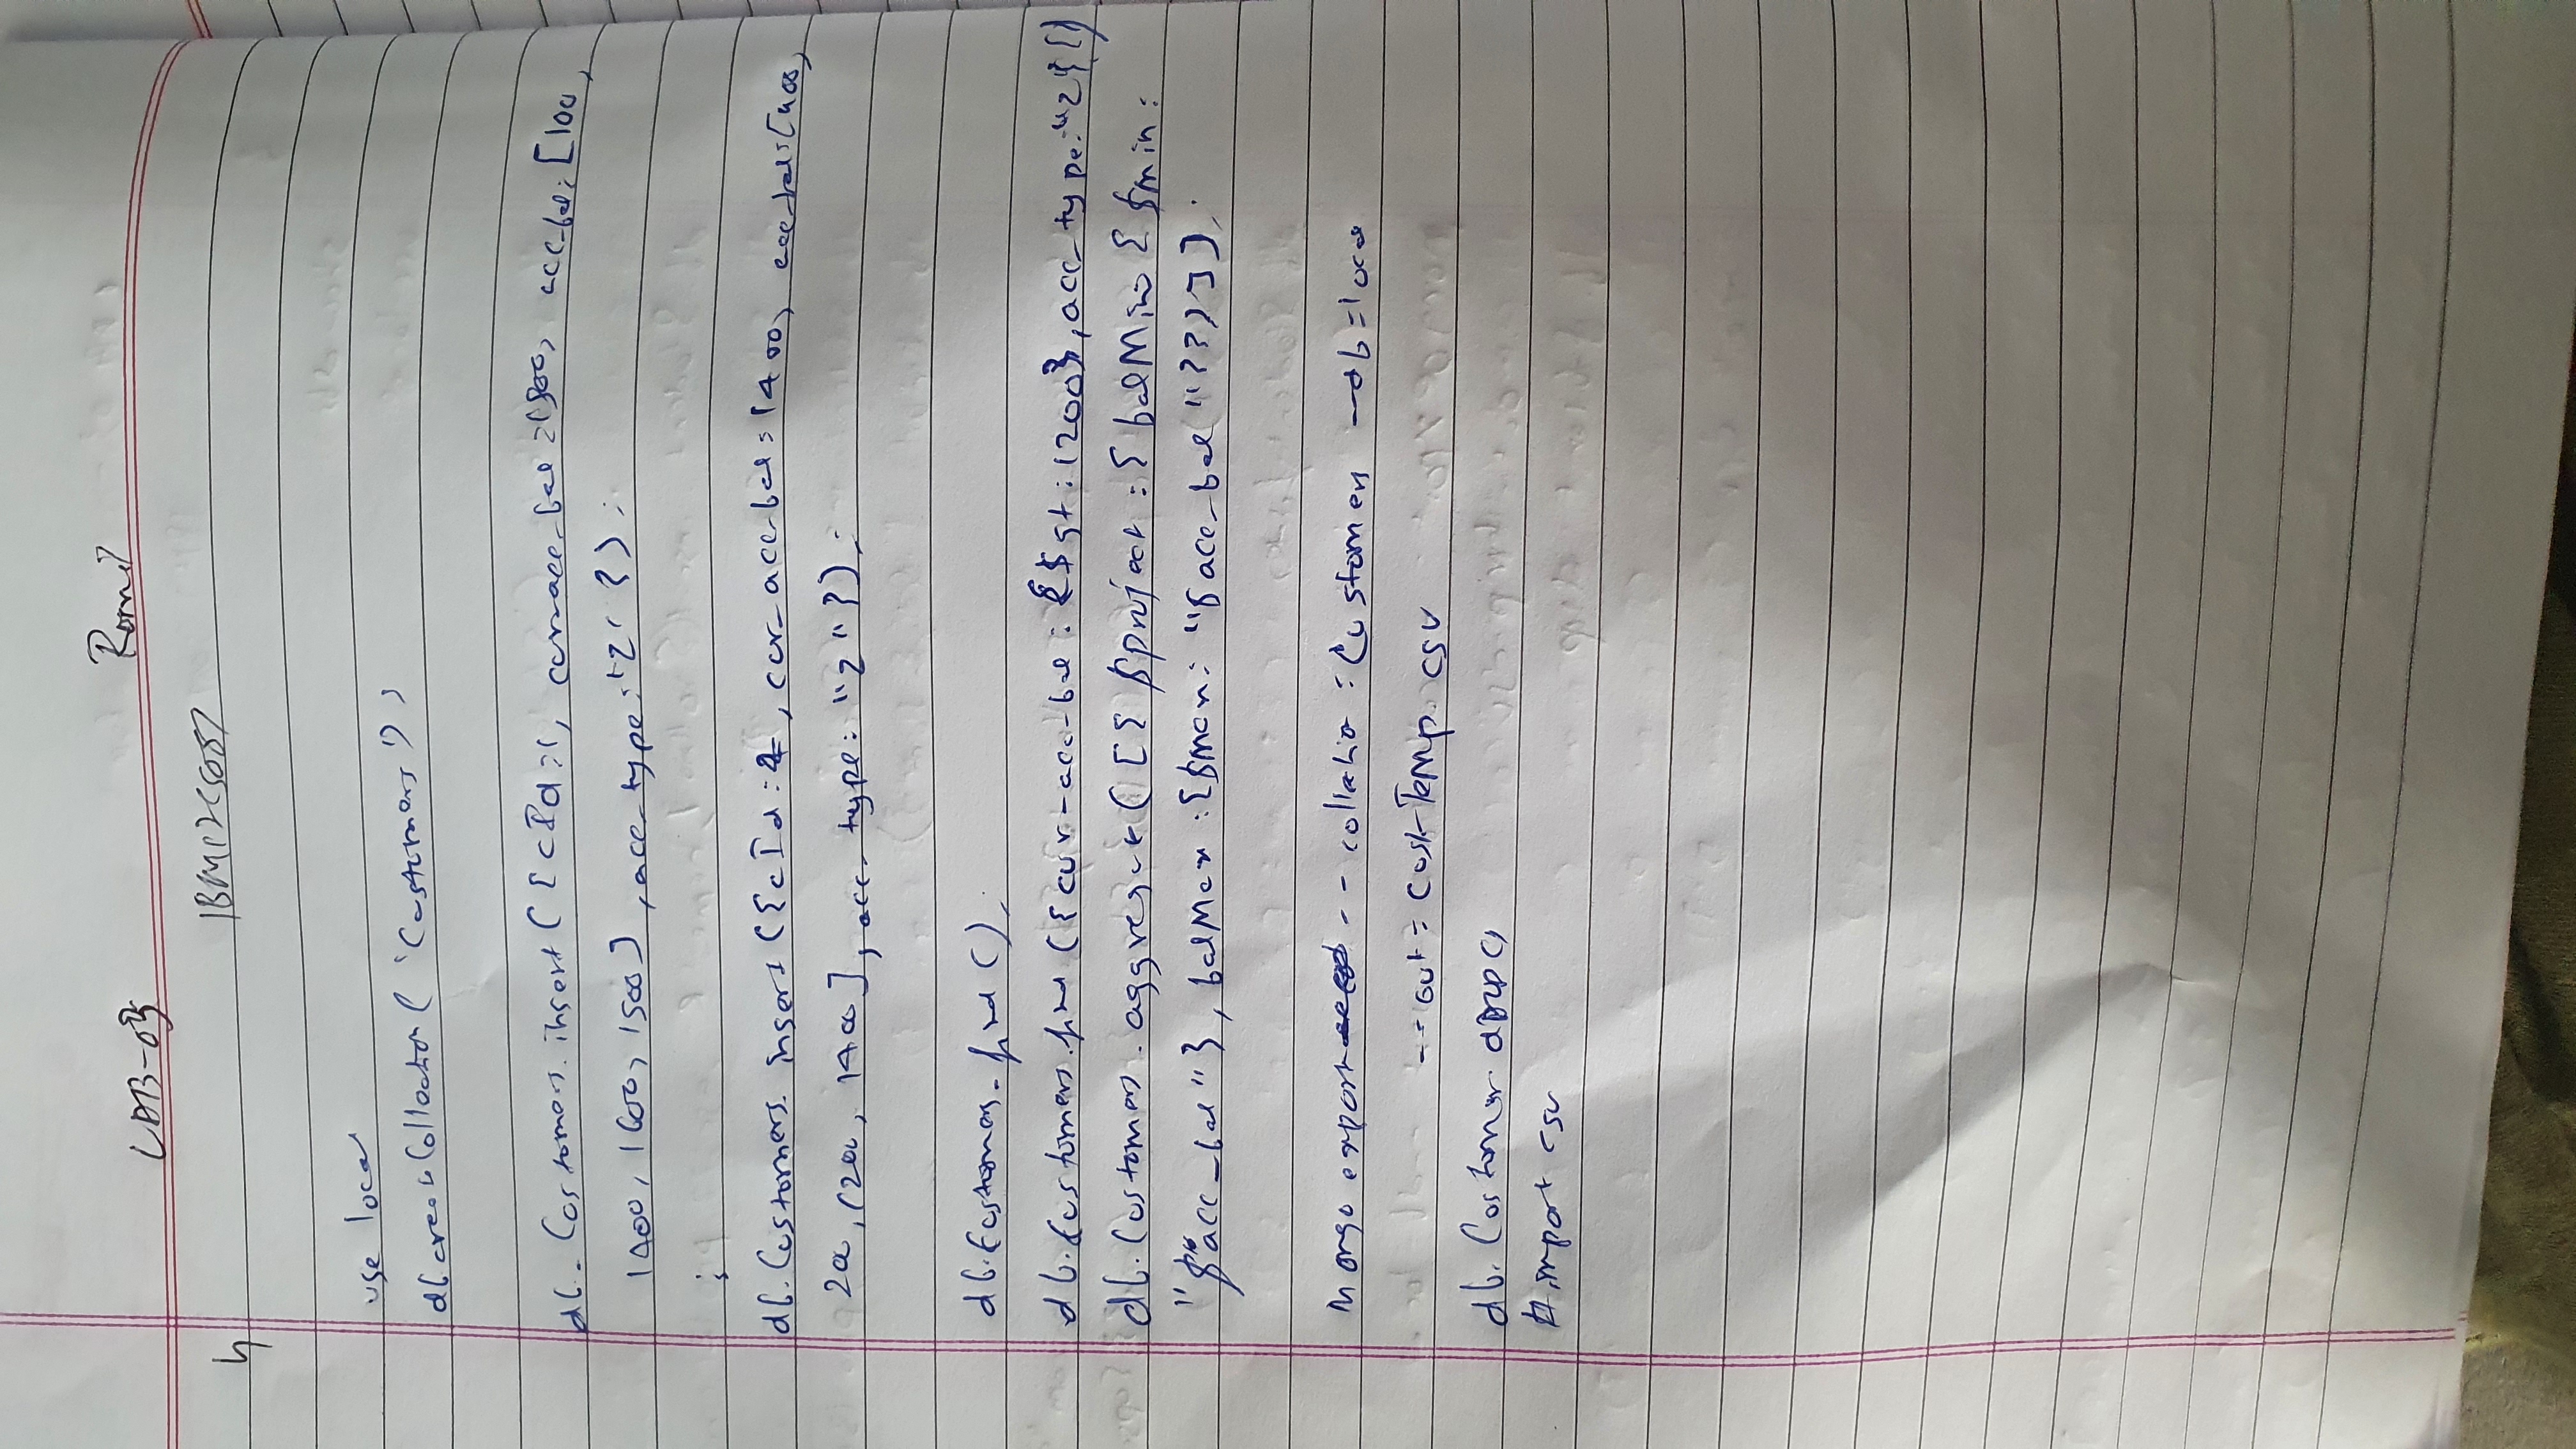 LAB-03 Romil
4
use local
db createCollection ( 'Customers' ) ;
db. Customers. insert ( { cId : 1, acc_bal : [100,
1400, 1600, 1500 ] , acc_type : "Z" } ) ;
;
db. Customers. insert ( { cId : 2 , cur_acc_bal : 1400, acc_bal : [400,
200, 1200, 1400 ] , acc_type : "z" } ) ;
db. Customers. find ( ) ;
db. Customers. find ( { cur-acc-bal : { $gt : 1200 } , acc_type : "z" } )
db. Customers. aggregate ( [ { $project : { balMin { $min :
"$acc_bal" } , balMax : { $max : "$acc_bal" } } } ] ) ;
Mongo export -- collection : Customers --db = local
-- out = Cust-Temp. csv
db. Customer. drop ()
# import csv